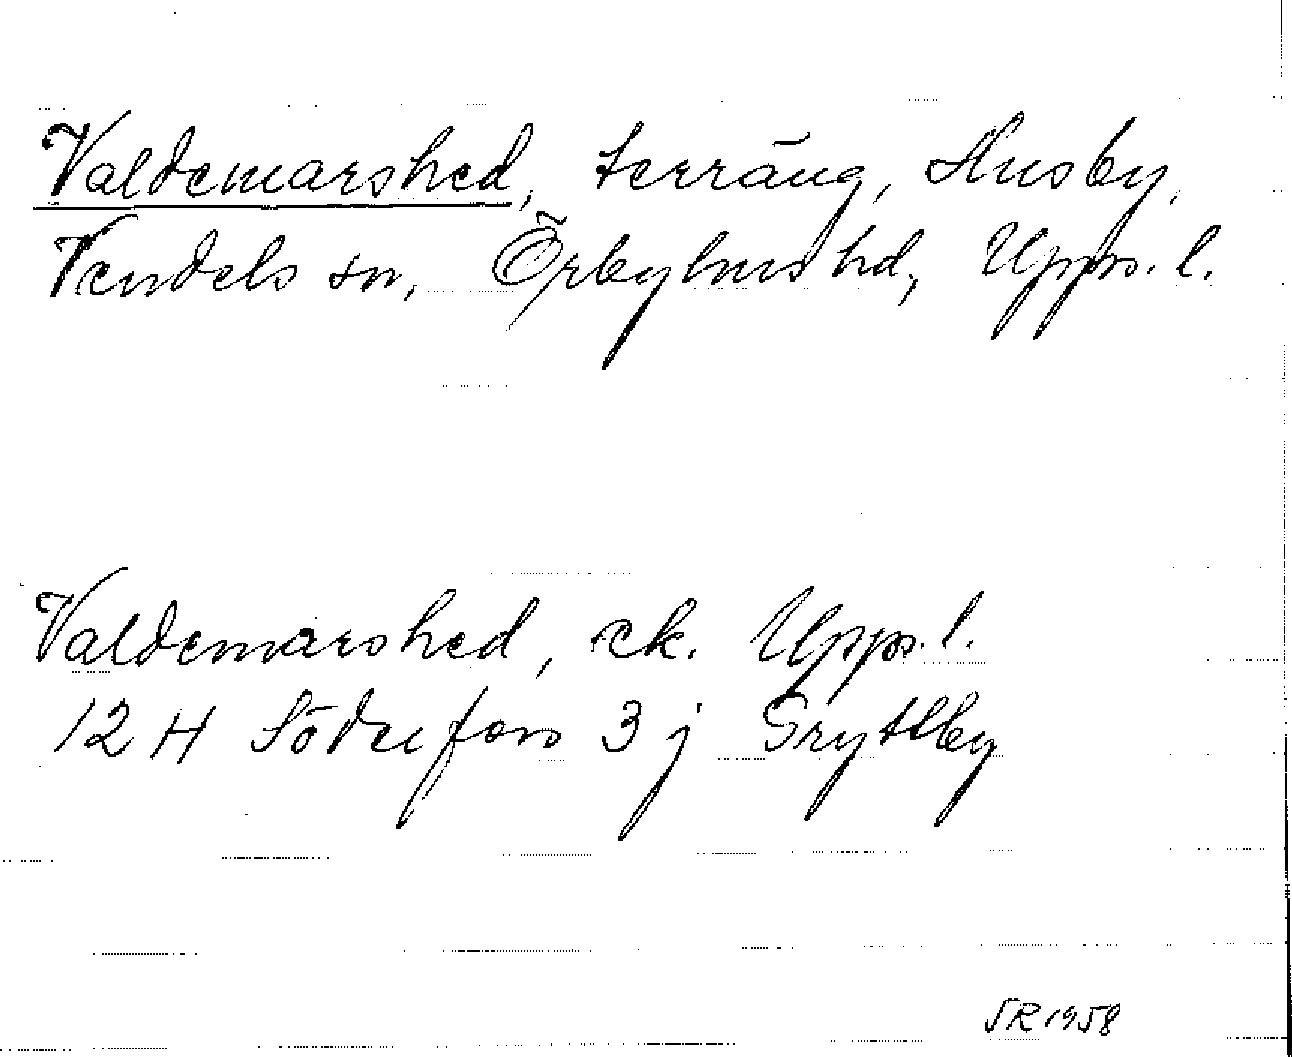 Valdemarshed, terräng, Husby,
Vendels sn, Örbyhus hd, Upps. l.
Valdemarshed, ek. Upps. l.
12 H Söderfors 3 j Gryttby
SR 1958